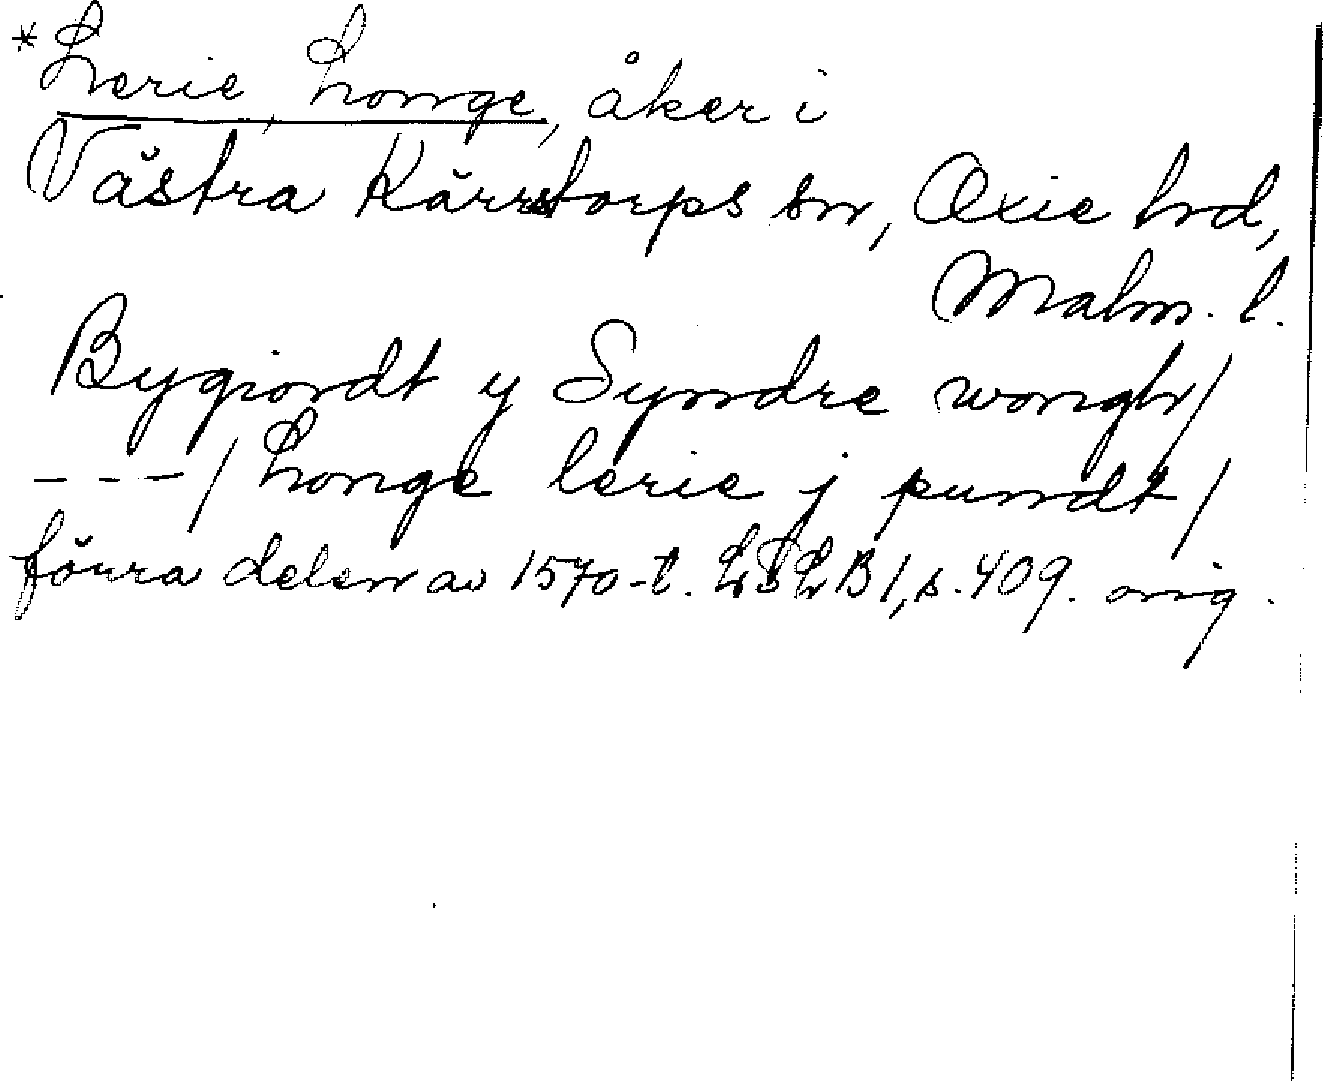 *Lerie, Longe, åker i
Västra Kärrstorps sn, Oxie hd,
Malm. l.
Bygiordt y Syndre wongh/
---/ Longe lerie j pundt/
förra delen av 1570-t. LSLB 1, s. 409. orig.